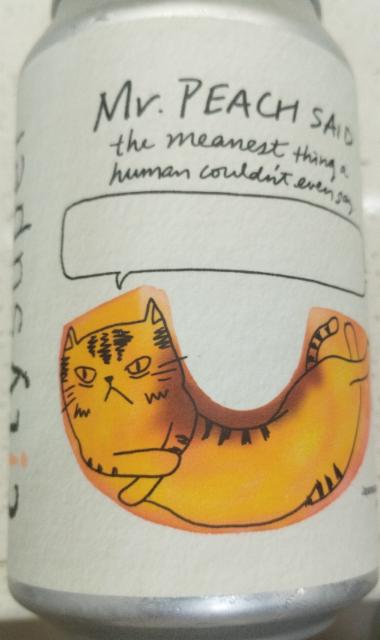 Mr. PEACH SAID
the meanest thing a
human couldn't even say